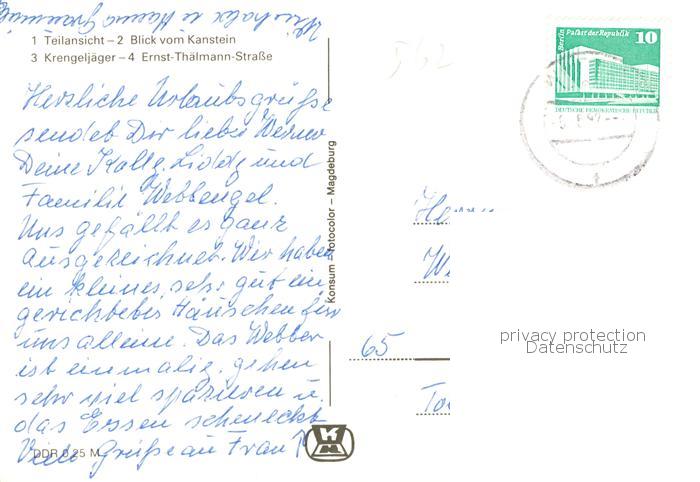 1 Teilansicht – 2 Blick vom Kanstein
3 Krengeljäger – 4 Ernst-Thälmann-Straße
Herzliche Urlaubsgrüße
sendet Dir lieber Werner
Deine Kollg. und
Familie
Uns gefällt es ganz
ausgezeichnet. Wir haben
ein kleines, sehr gut ein
gerichtetes Häuschen für
uns alleine. Das Wetter
ist einmalig. gehen
sehr viel spazieren u.
das Essen schmeckt
Viele Grüße an Frau
DDR 0,25 M
Konsum – fotocolor – Magdeburg
562
Berlin Palast der Republik 10
DEUTSCHE DEMOKRATISCHE REPUBLIK
65
privacy protection
Datenschutz